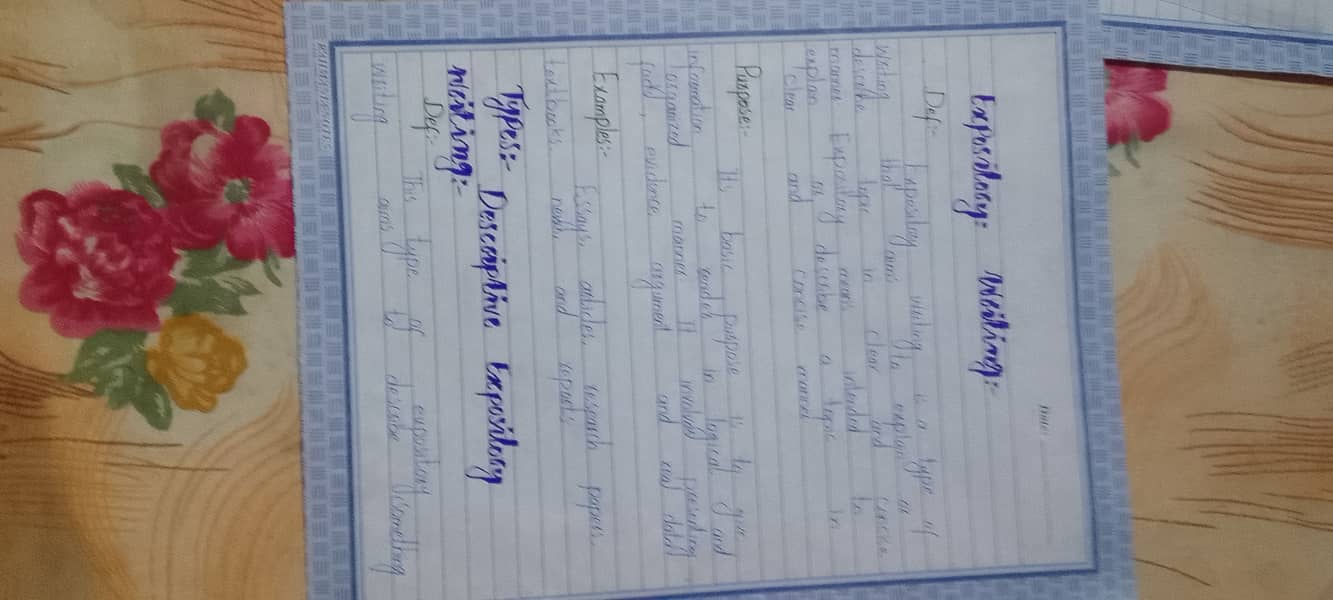 Expository: Writing:-
Def:- Expository writing is a type of
writing that aims to explain or
describe topic in clear and concise
manner Expository means intended to
explain or describe a topic in
clear and concise manner
Purpose:- Its basic purpose is to give
information to reader in logical and
organized manner It involved presenting
facts, evidence argument and real data
Examples:- Essays, articles, research papers,
textbooks and reports
Types:- Descriptive Expository
Writing:-
Def:- This type of expository
writing aims to describe something